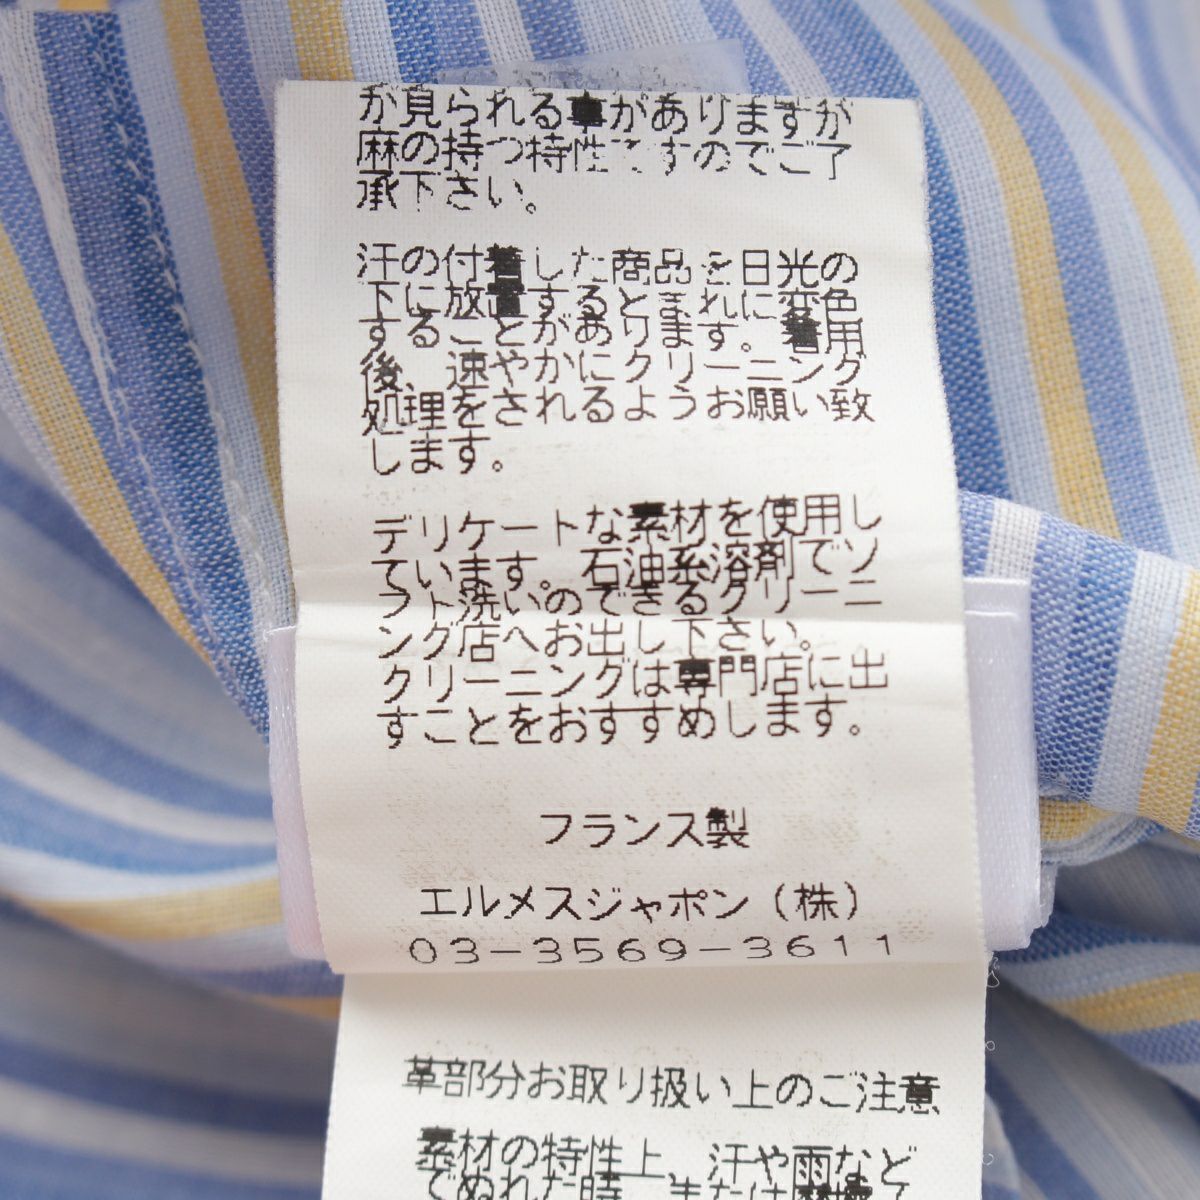 が見られる事がありますが
麻の持つ特性ですのでご了
承下さい。
汗の付着した商品を日光の
下に放置するとまれに変色
することがあります。着用
後、速やかにクリーニング
処理をされるようお願い致
します。
デリケートな素材を使用し
ています。石油系溶剤でソ
フト洗いのできるクリーニ
ング店へお出し下さい。
クリーニングは専門店に出
すことをおすすめします。
フランス製
エルメスジャポン(株)
03-3569-3611
革部分お取り扱い上のご注意
素材の特性上、汗や雨など
でぬれた時、または摩擦